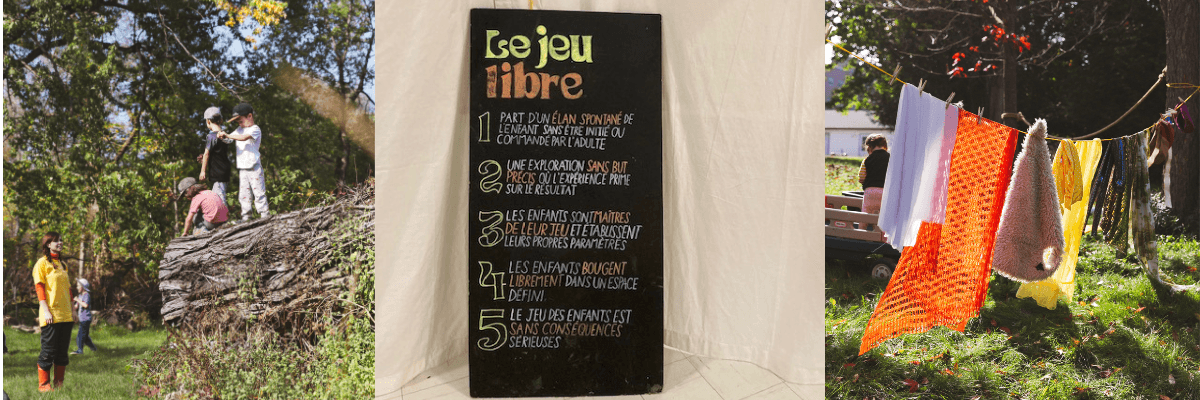 Le jeu
libre
1 PART D'UN ÉLAN SPONTANÉ DE
L'ENFANT SANS ÊTRE INITIÉ OU
COMMANDÉ PAR L'ADULTE
2 UNE EXPLORATION SANS BUT
PRÉCIS OÙ L'EXPÉRIENCE PRIME
SUR LE RÉSULTAT
3 LES ENFANTS SONT MAÎTRES
DE LEUR JEU ET ÉTABLISSENT
LEURS PROPRES PARAMÈTRES
4 LES ENFANTS BOUGENT
LIBREMENT DANS UN ESPACE
DÉFINI.
5 LE JEU DES ENFANTS EST
SANS CONSÉQUENCES
SÉRIEUSES